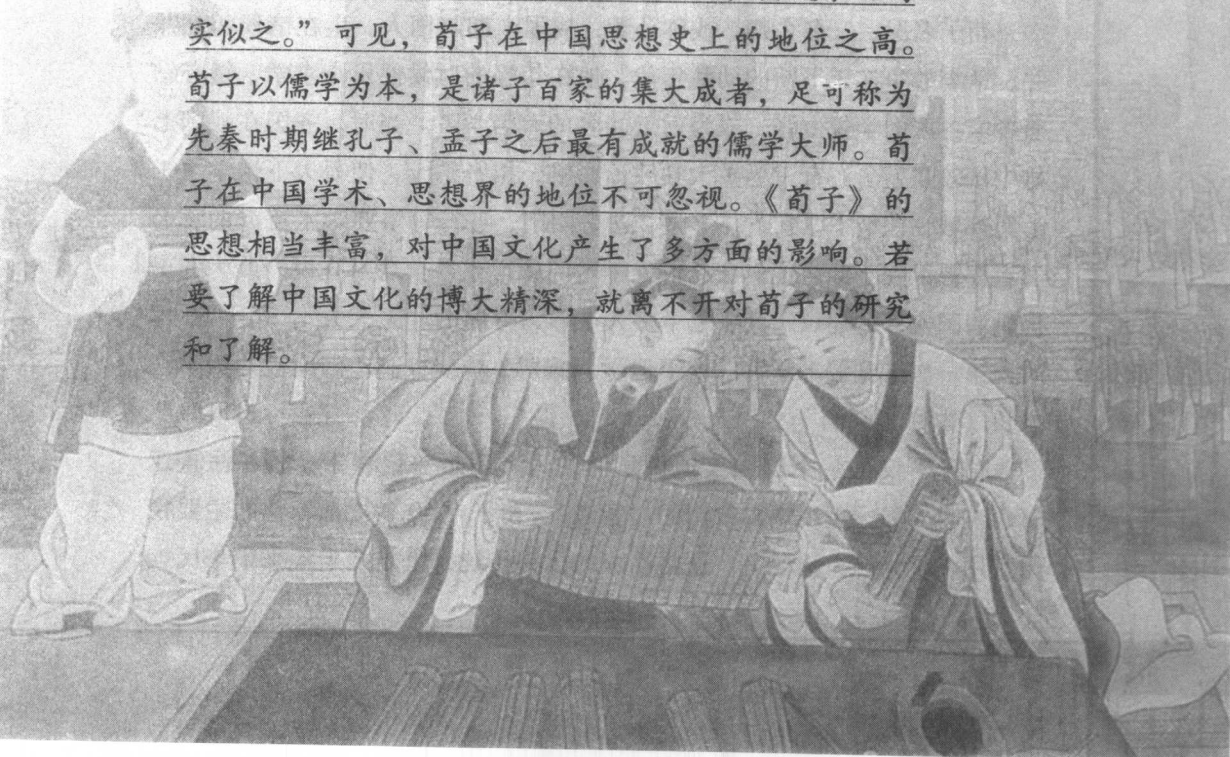 实似之。”可见，荀子在中国思想史上的地位之高。
荀子以儒学为本，是诸子百家的集大成者，足可称为
先秦时期继孔子、孟子之后最有成就的儒学大师。荀
子在中国学术、思想界的地位不可忽视。《荀子》的
思想相当丰富，对中国文化产生了多方面的影响。若
要了解中国文化的博大精深，就离不开对荀子的研究
和了解。